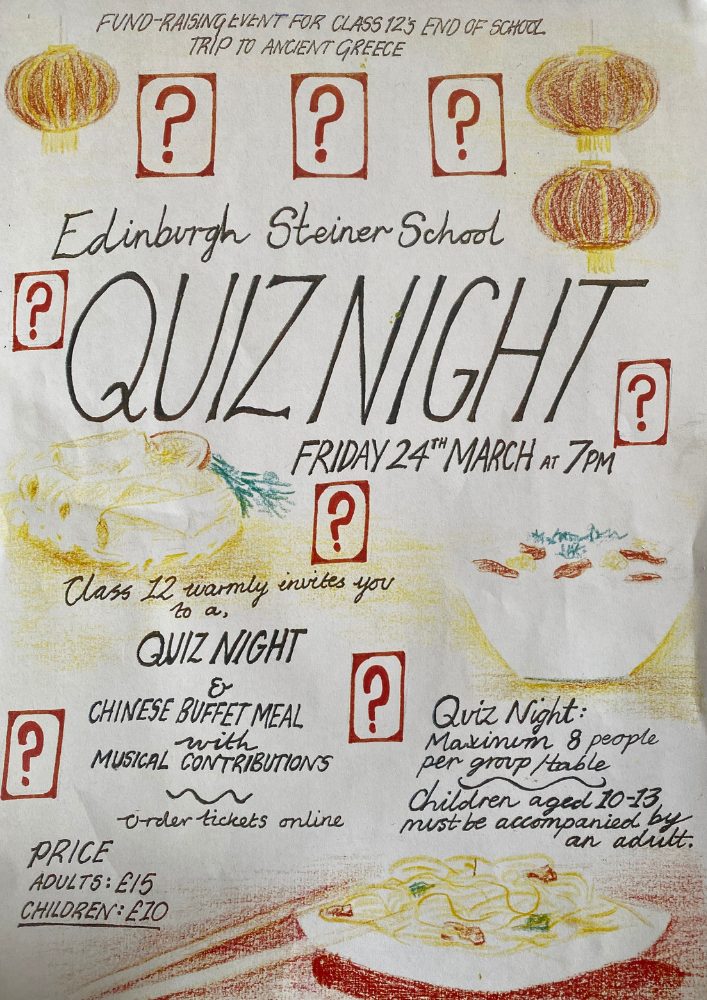 FUND-RAISING EVENT FOR CLASS 12's END OF SCHOOL
TRIP TO ANCIENT GREECE
? ? ?
Edinburgh Steiner School
?
QUIZ NIGHT
?
FRIDAY 24TH MARCH AT 7PM
?
Class 12 warmly invites you
to a,
QUIZ NIGHT
&
CHINESE BUFFET MEAL
with
MUSICAL CONTRIBUTIONS
order tickets online
?
?
Quiz Night:
Maximum 8 people
per group/table
Children aged 10-13
must be accompanied by
an adult.
PRICE
ADULTS: £15
CHILDREN: £10